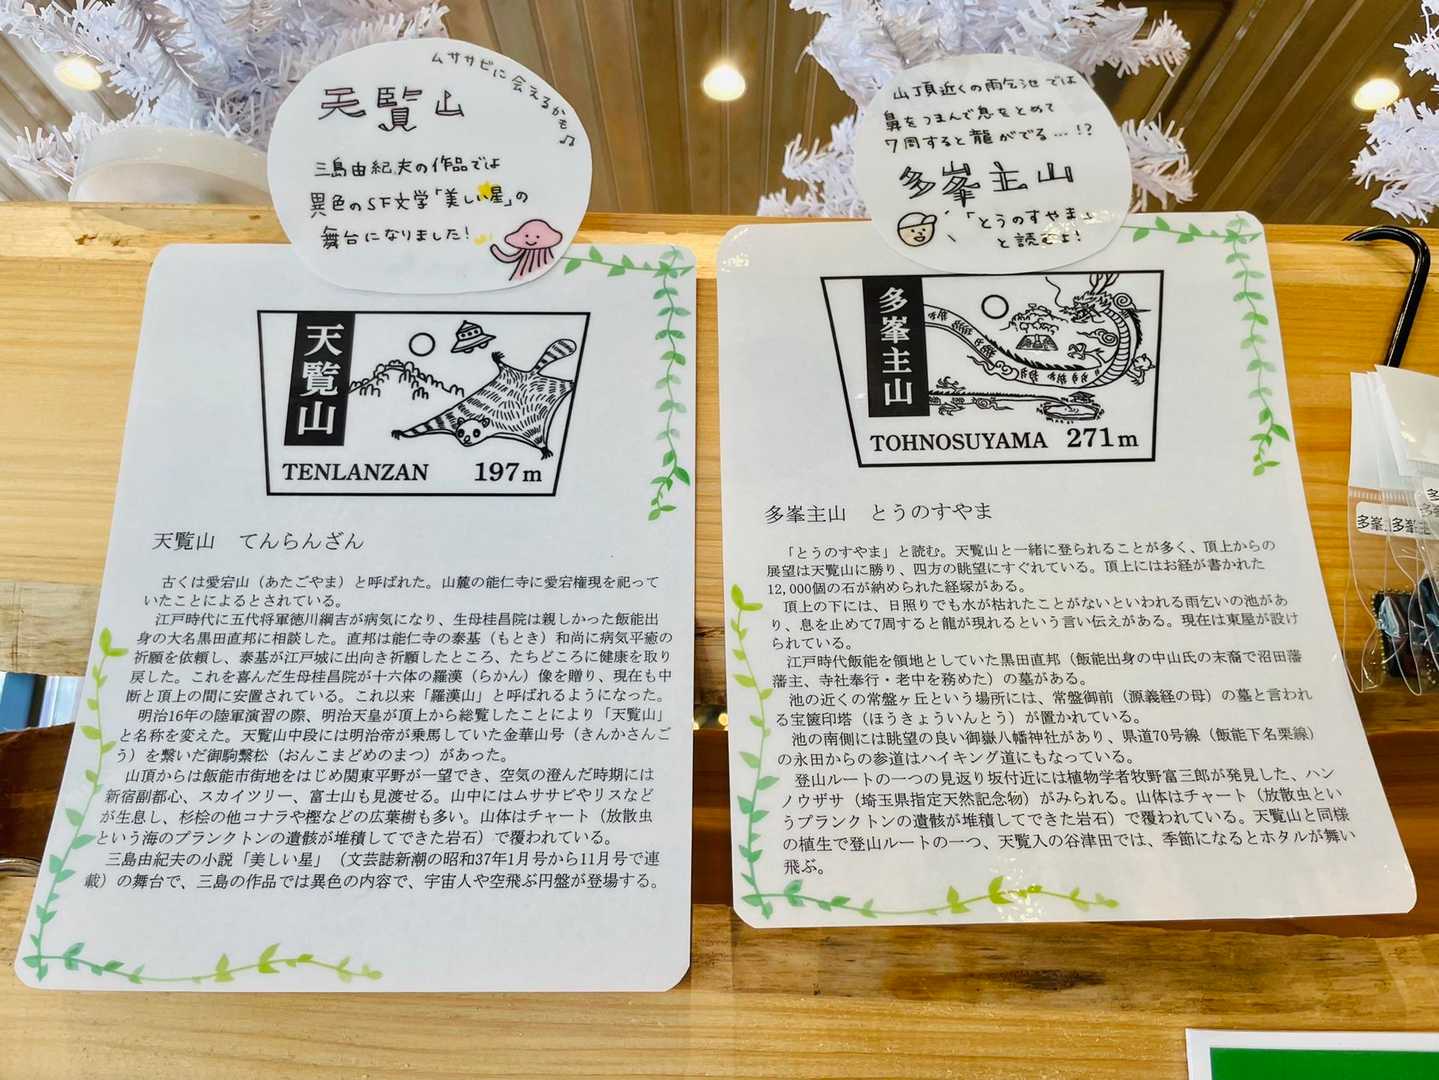 ムササビに会えるかも♪
天覧山
三島由紀夫の作品では
異色のSF文学「美しい星」の
舞台になりました!
天覧山
TENLANZAN 197m
天覧山 てんらんざん
古くは愛宕山（あたごやま）と呼ばれた。山麓の能仁寺に愛宕権現を祀って
いたことによるとされている。
江戸時代に五代将軍徳川綱吉が病気になり、生母桂昌院は親しかった飯能出
身の大名黒田直邦に相談した。直邦は能仁寺の泰基（もとき）和尚に病気平癒の
祈願を依頼し、泰基が江戸城に出向き祈願したところ、たちどころに健康を取り
戻した。これを喜んだ生母桂昌院が十六体の羅漢（らかん）像を贈り、現在も中
断と頂上の間に安置されている。これ以来「羅漢山」と呼ばれるようになった。
明治16年の陸軍演習の際、明治天皇が頂上から総覧したことにより「天覧山」
と名称を変えた。天覧山中段には明治帝が乗馬していた金華山号（きんかさんご
う）を繋いだ御駒繋松（おんこまどめのまつ）があった。
山頂からは飯能市街地をはじめ関東平野が一望でき、空気の澄んだ時期には
新宿副都心、スカイツリー、富士山も見渡せる。山中にはムササビやリスなど
が生息し、杉桧の他コナラや樫などの広葉樹も多い。山体はチャート（放散虫
という海のプランクトンの遺骸が堆積してできた岩石）で覆われている。
三島由紀夫の小説「美しい星」（文芸誌新潮の昭和37年1月号から11月号で連
載）の舞台で、三島の作品では異色の内容で、宇宙人や空飛ぶ円盤が登場する。
山頂近くの雨乞池では
鼻をつまんで息をとめて
7周すると龍がでる…!?
多峯主山
「とうのすやま」
と読むよ!
多峯主山
TOHNOSUYAMA 271m
多峯主山 とうのすやま
「とうのすやま」と読む。天覧山と一緒に登られることが多く、頂上からの
展望は天覧山に勝り、四方の眺望にすぐれている。頂上にはお経が書かれた
12,000個の石が納められた経塚がある。
頂上の下には、日照りでも水が枯れたことがないといわれる雨乞いの池があ
り、息を止めて7周すると龍が現れるという言い伝えがある。現在は東屋が設け
られている。
江戸時代飯能を領地としていた黒田直邦（飯能出身の中山氏の末裔で沼田藩
藩主、寺社奉行・老中を務めた）の墓がある。
池の近くの常盤ヶ丘という場所には、常盤御前（源義経の母）の墓と言われ
る宝篋印塔（ほうきょういんとう）が置かれている。
池の南側には眺望の良い御嶽八幡神社があり、県道70号線（飯能下名栗線）
の永田からの参道はハイキング道にもなっている。
登山ルートの一つの見返り坂付近には植物学者牧野富三郎が発見した、ハン
ノウザサ（埼玉県指定天然記念物）がみられる。山体はチャート（放散虫とい
うプランクトンの遺骸が堆積してできた岩石）で覆われている。天覧山と同様
の植生で登山ルートの一つ、天覧入の谷津田では、季節になるとホタルが舞い
飛ぶ。